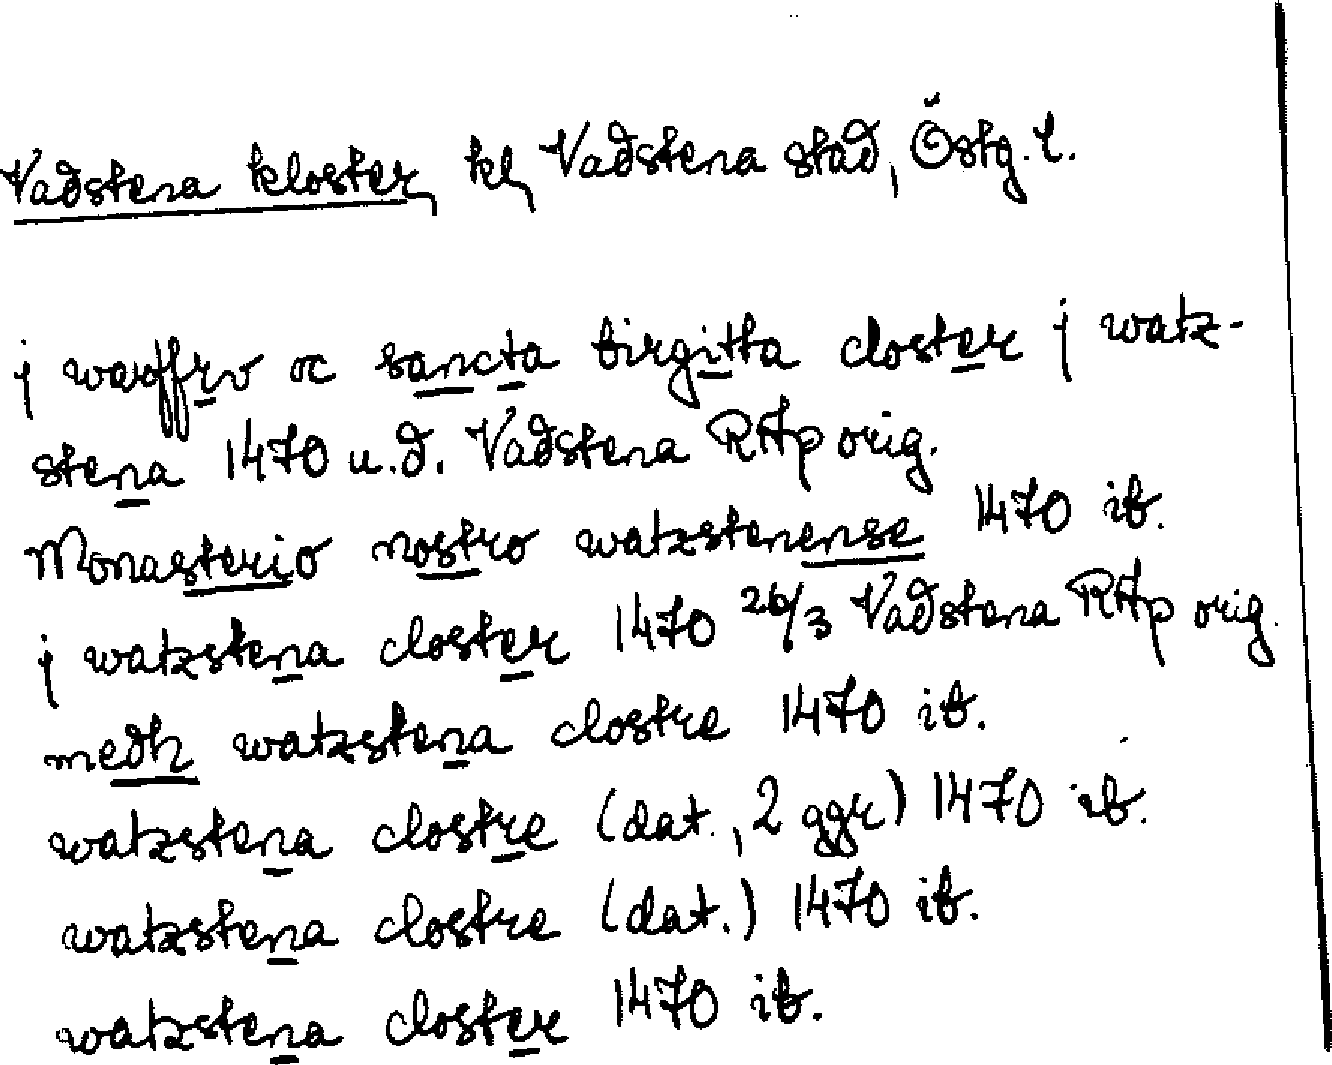 Vadstena kloster, kl, Vadstena stad, Östg. l.
j warffrv oc sancta birgitta closter j watz-
stena 1470 u.d. Vadstena RAp orig.
Monasterio nostro watzstenense 1470 ib.
j watzstena closter 1470 26/3 Vadstena RAp orig.
medh watzstena clostre 1470 ib.
watzstena clostre (dat., 2 ggr) 1470 ib.
watzstena clostre (dat.) 1470 ib.
watzstena closter 1470 ib.